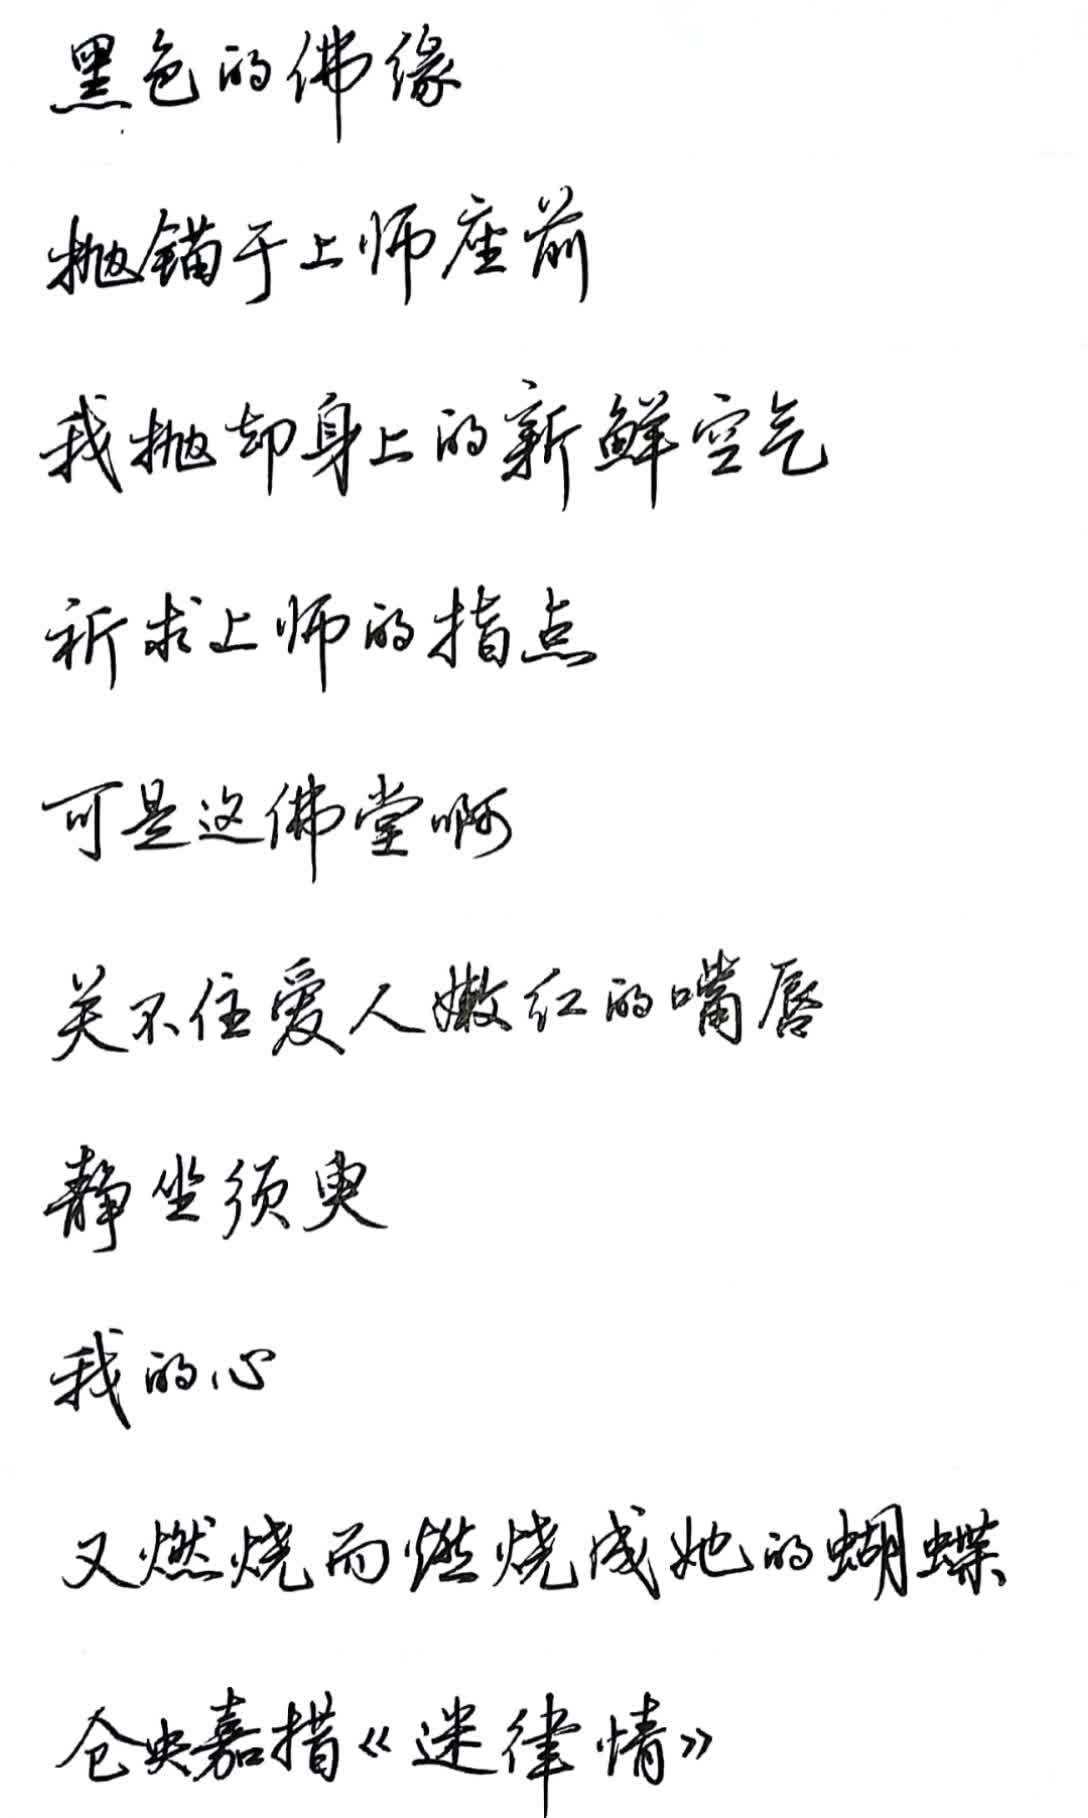 黑色的佛缘
抛锚于上师座前
我抛却身上的新鲜空气
祈求上师的指点
可是这佛堂啊
关不住爱人嫩红的嘴唇
静坐须臾
我的心
又燃烧而燃烧成她的蝴蝶
仓央嘉措《迷律情》